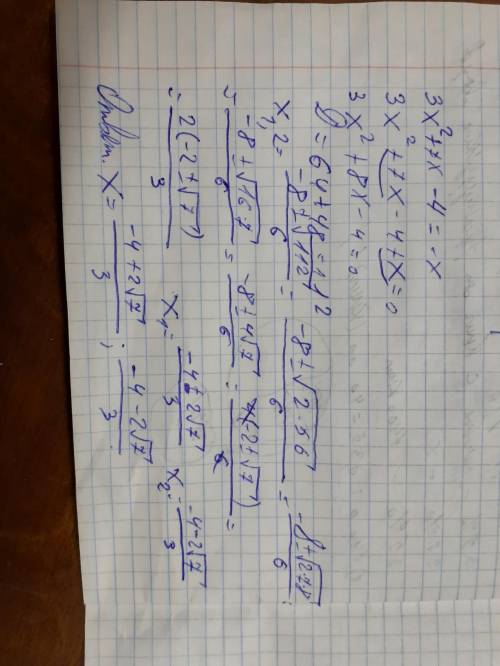 3x²+7x-4=-x
3x²+7x-4+x=0
3x²+8x-4=0
D=64+48=112
x₁,₂= (-8±√112)/6 = (-8±√(2·56))/6 = (-8±√(2·7·8))/6 =
= (-8±√(16·7))/6 = (-8±4√7)/6 = (4(-2±√7))/6 =
= (2(-2±√7))/3 x₁= (-4+2√7)/3 x₂= (-4-2√7)/3
Ответ: x= (-4+2√7)/3 ; (-4-2√7)/3